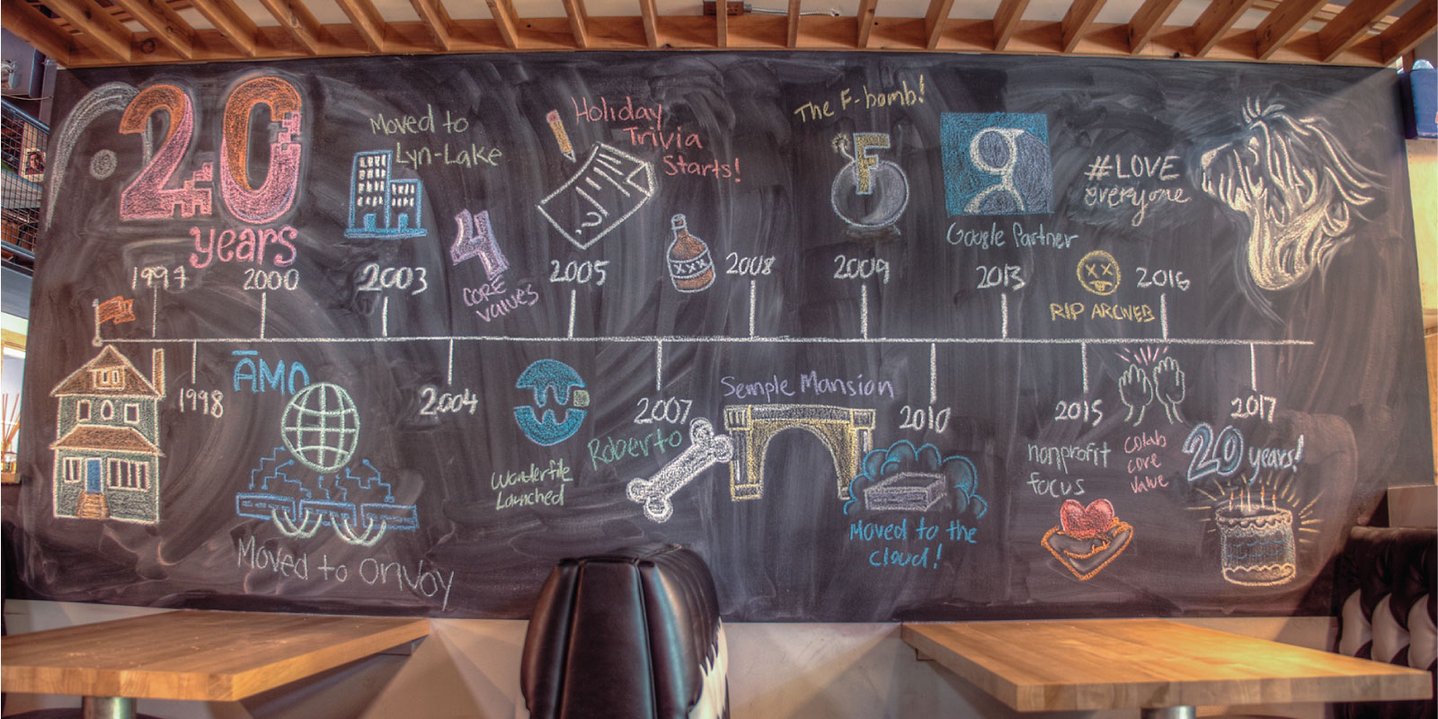 20
years
1997
2000
Moved to
Lyn-Lake
2003
4
CORE
values
Holiday
Trivia
Starts!
2005
XXX
2008
The F-bomb!
F
2009
Google Partner
2013
#LOVE
everyone
XX
RIP ARCWEB
2016
1998
ĀMO
Moved to Onvoy
2004
Wonderfile
Launched
2007
Roberto
Semple Mansion
2010
Moved to the
cloud!
2015
nonprofit
focus
colab
core
value
2017
20 years!